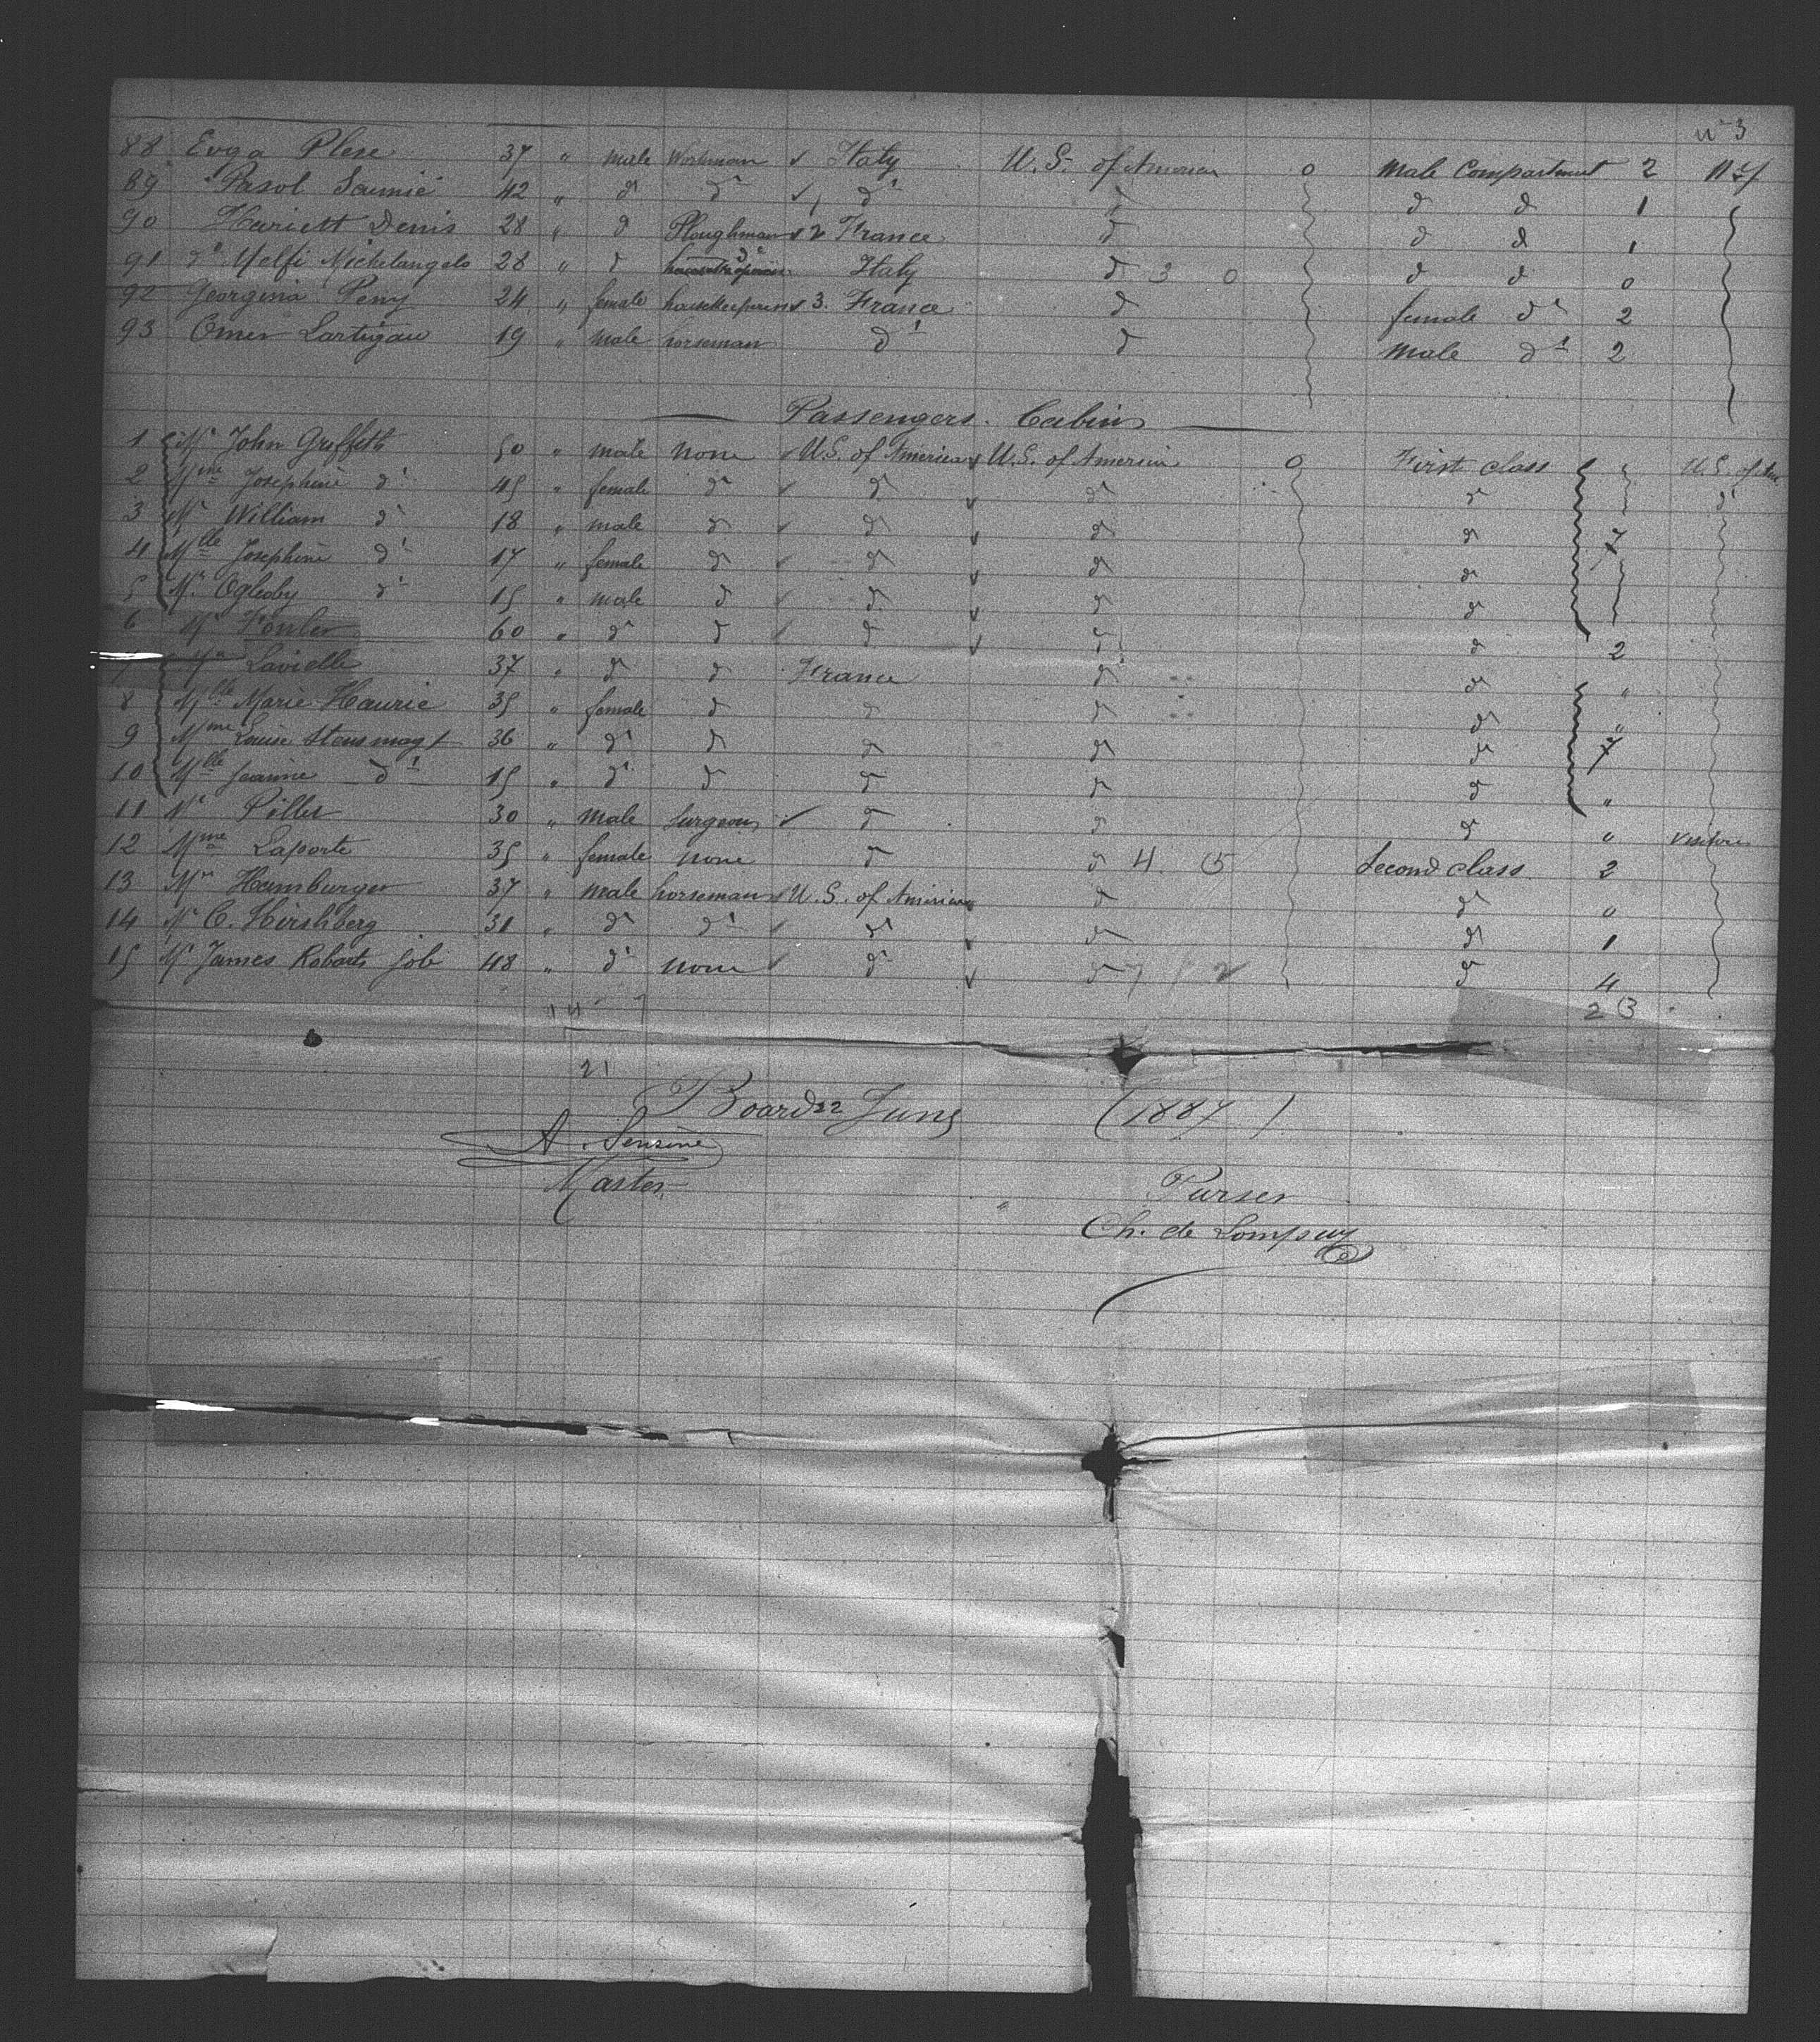 n° 3
88 Evga Plese 37 " male Workman ✓ Italy U.S. of America 0 Male Compartment 2 N.Y
89 Pasol Saumié 42 " d° d° ✓ d° d° d d 1
90 Henriett Denis 28 " d Ploughman ✓ 2 France d d d 1
91 d° Melfi Michelangelo 28 " d d° Italy d 3 0 d d 0
92 Georgina Peny 24 " female housekeeper ✓ 3. France d female d° 2
93 Omer Lartigau 19 " male horseman d° d male d° 2
Passengers. Cabin
1 Mr John Griffith 50 " male none ✓ U.S. of America ✓ U.S. of America 0 First class U.S. of Am
2 Mme Josephine d° 45 " female d° ✓ d ✓ d° d d°
3 Mr William d° 18 " male d ✓ d ✓ d d 7
4 Mlle Josephine d° 17 " female d ✓ d ✓ d d
5 Mr Oglesby d° 15 " male d ✓ d ✓ d d
6 Mr Fowler 60 " d° d ✓ d ✓ d d 2
7 Mr Lavielle 37 " d d France d d "
8 Mlle Marie Haurie 35 " female d d d d "
9 Mme Louise 36 " d° d d d d 7
10 Mlle Jeanne d° 15 " d° d d d d "
11 Mr Piller 30 " male Surgeon ✓ d d d " visitor
12 Mme Laporte 35 " female none d d 4 5 Second class 2
13 Mr Hamburger 37 " male horseman ✓ U.S. of America d d "
14 Mr C. Hirshberg 31 " d d° ✓ d ✓ d d 1
15 Mr James Robarts Job 48 " d° none ✓ d ✓ d 7 2 d 4
14 7 23
21
Board 22 June (1887)
A. Sensine
Master
Purser
Ch. de Lompuy